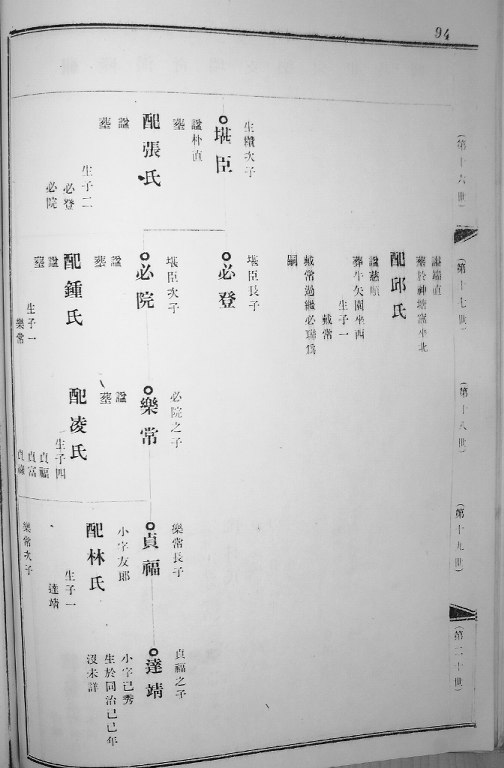 94
(第十六世)
生續次子
堪臣
諡朴直
墓
配張氏
諡
墓
生子二
必登
必院
(第十七世)
諡端直
配邱氏
諡慈順
葬牛矢園坐酉
生子一
戴常
戴常過繼必聯爲
嗣
堪臣長子
必登
堪臣次子
必院
諡
墓
配鍾氏
諡
墓
生子一
樂常
(第十八世)
必院之子
樂常
諡
墓
配凌氏
生子四
貞福
貞富
(第十九世)
樂常長子
貞福
小字友郎
配林氏
生子一
達靖
樂常次子
(第二十世)
貞福之子
達靖
小字已秀
生於同治己巳年
沒未詳